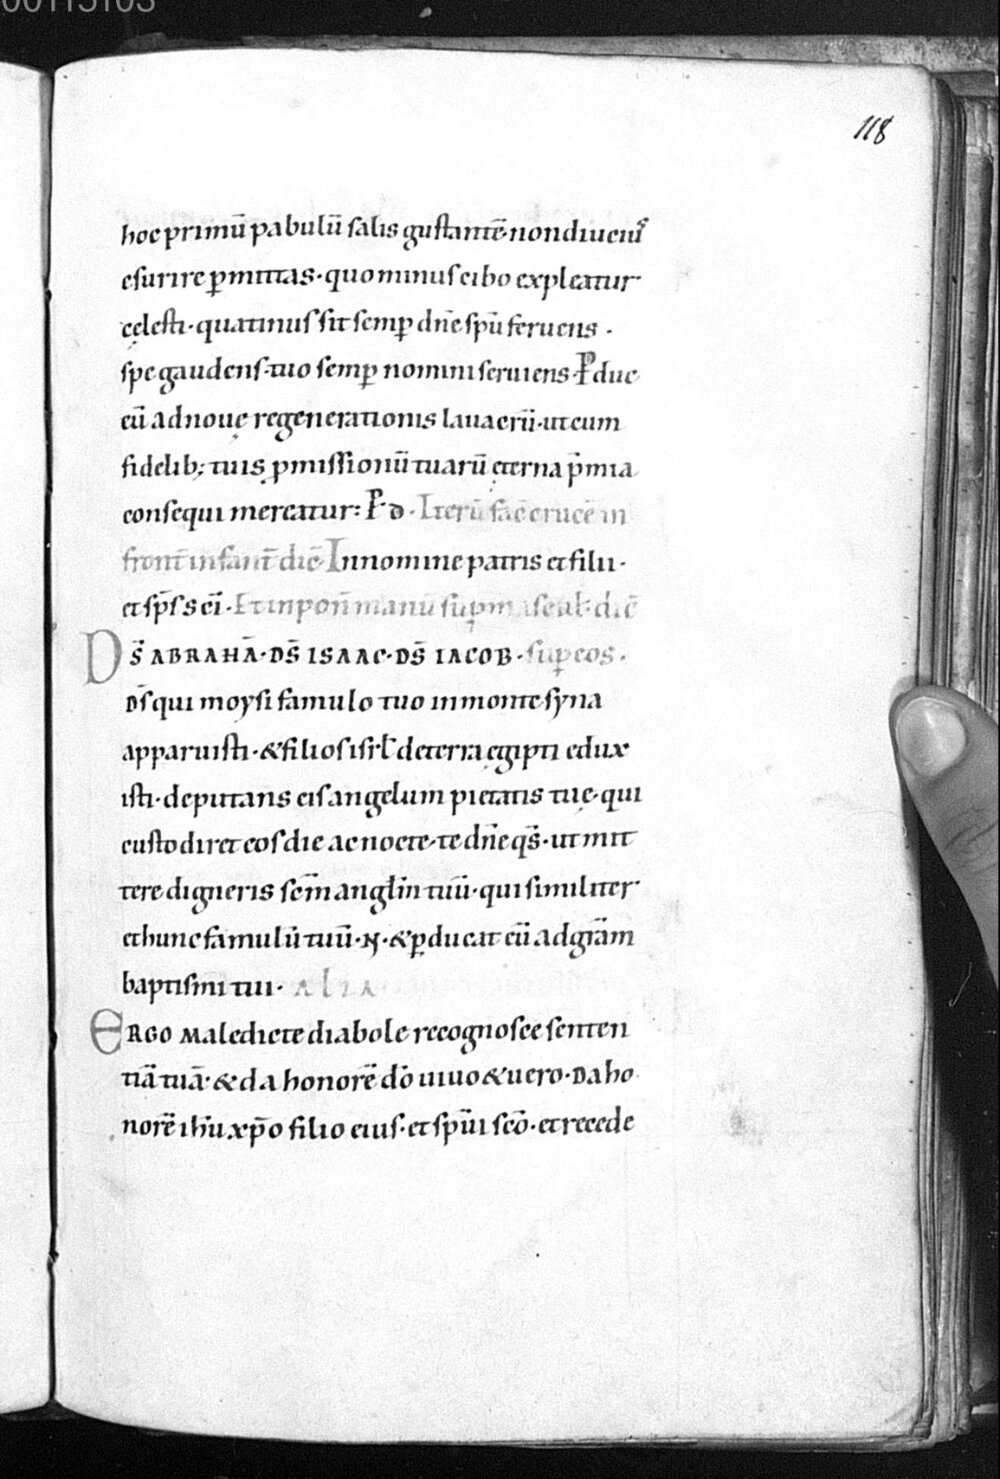 00115103
118
hoc primū pabulū salis gustantē· non diutiuſ
esurire ꝑmittas· quo minus cibo expleatur
cęlesti· quatinus sit semꝑ dn̄e spū feruens·
spe gaudens· tuo semꝑ nomini seruiens· Pduc
eū ad nouę regenerationis lauacrū· ut cum
fidelib; tuis ꝓmissionū tuarū ęterna p̄mia
consequi mereatur: P d· Iterū fac̄ crucē in
front̄ infant̄ dic̄ In nomine patris et filii·
et sp̄s s ci̅· Et inpon̄ manū suꝑ dic̄
Ds̄ ABRAHĀ· DS̄ ISAAC· DS̄ IACOB· suꝑ eos·
Ds̄ qui moysi famulo tuo in monte syna
apparuisti· & filios isrl̄ de terra ęgipti edux
isti· deputans eis angelum pietatis tuę· qui
custodiret eos die ac nocte· te dn̄e qs̄· ut mit
tere digneris sc̄m angl̄m tuū· qui similiter
et hunc famulū tuū· N· & ꝑducat eū ad gr̄am
baptismi tui· ALIA
ERGO Maledicte diabole recognosce senten
tiā tuā· & da honorē dō uiuo & uero· Da ho
norē ihū xp̄o filio eius· et spūi scō· et recede